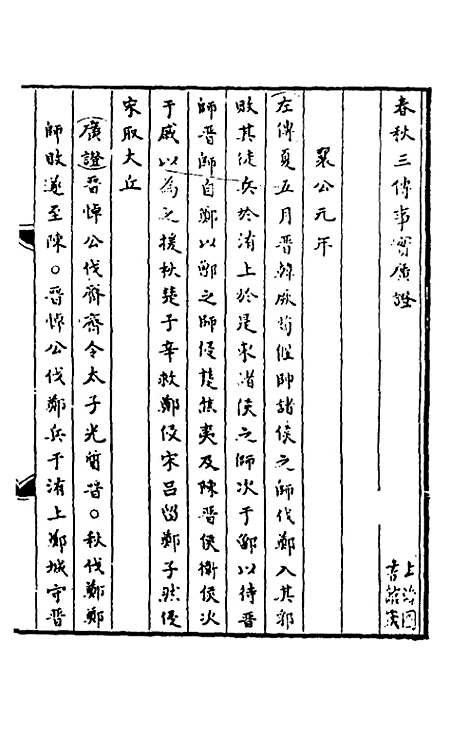 春秋三傳事實廣證
上海圖
書館藏
襄公元年
左傳夏五月晋韓厥荀偃帥諸侯之師伐鄭入其郛
敗其徒兵於洧上於是東諸侯之師次于鄫以待晋
師晋師自鄭以鄫之師侵楚焦夷及陳晋侯衛侯次
于戚以為之援秋楚子辛救鄭侵宋呂留鄭子然侵
宋取大丘
廣證晋悼公伐齊齊令太子光質晋○秋伐鄭鄭
師敗遂至陳○晋悼公伐鄭兵于洧上鄭城守晋